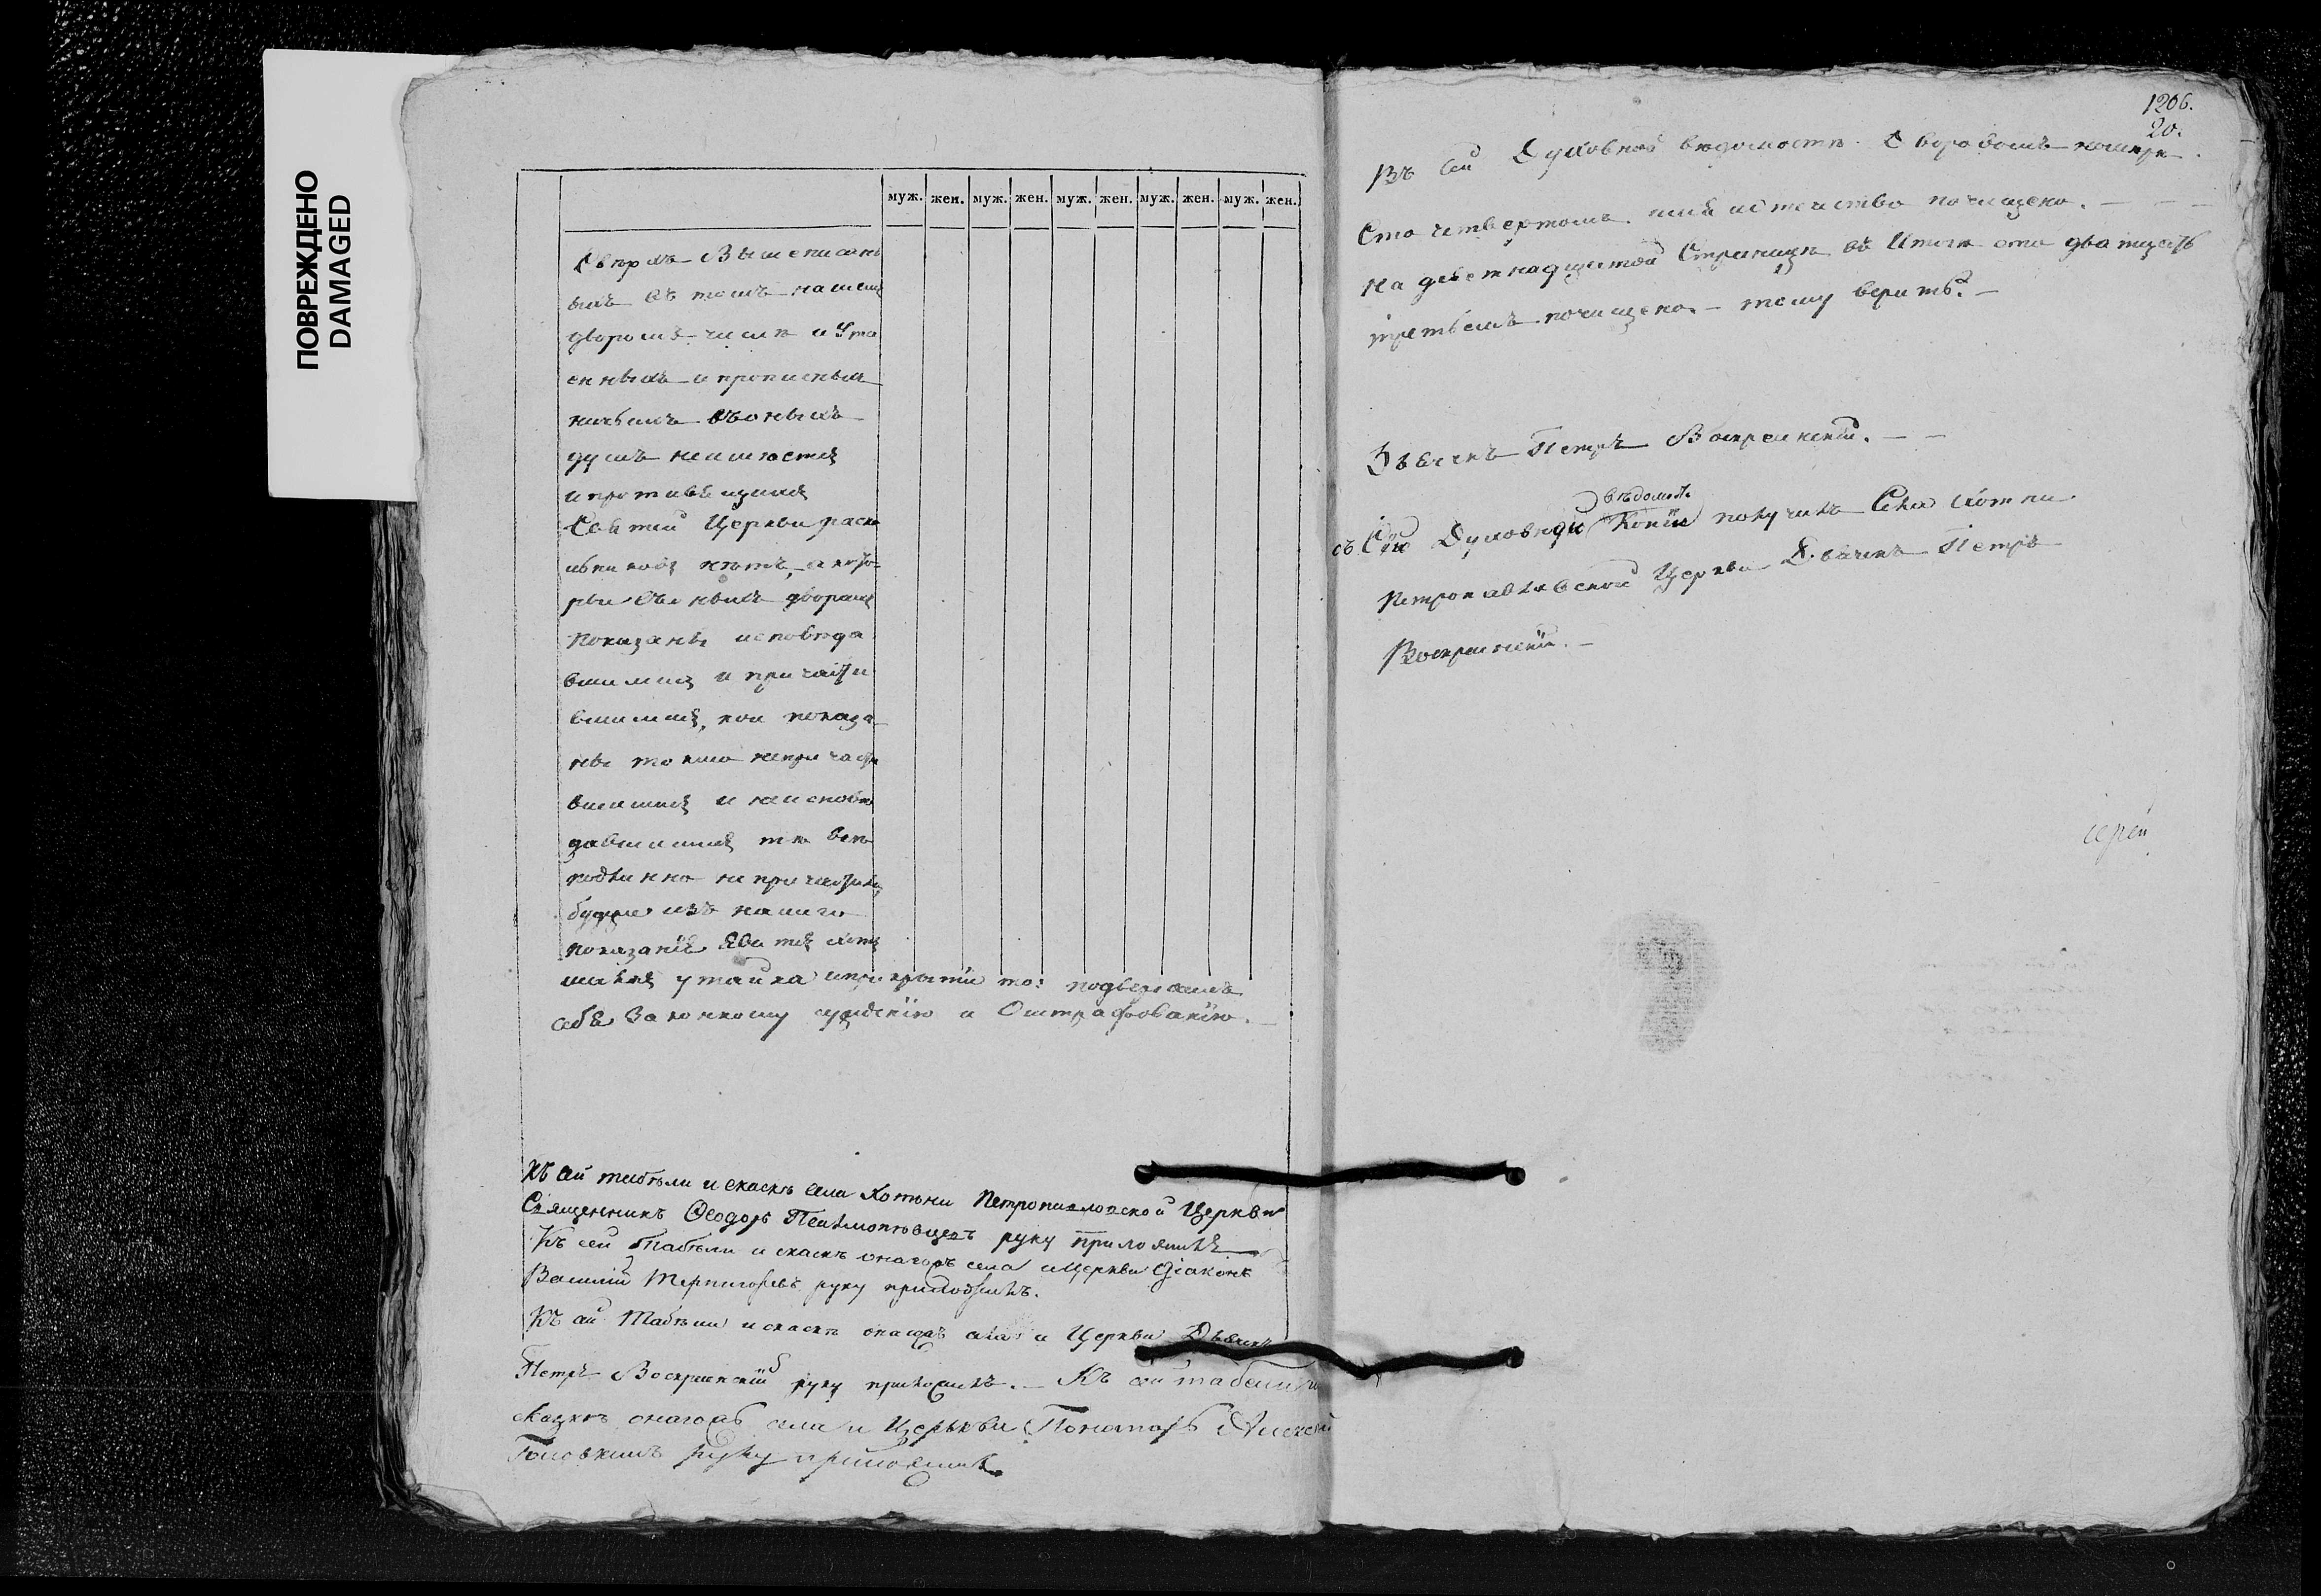 ПОВРЕЖДЕНО
DAMAGED
муж. жен. муж. жен. муж. жен. муж. жен. муж. жен.
Сверхъ Вышеписан
ныхъ въ томъ нашемъ
дворомъ числе и Ута
енныхъ и прописныхъ
душъ неимеется
и противящихся
Святей Церкви раско
льниковъ нетъ, а кото
рыи въ оныхъ дворахъ
показаны исповеда
вшимися и причасти
вшимися, кои показа
ны токмо непричасти
вшимися и неисповѣ
давшимися те все
подлинно не причастны
буде изъ нашего
показанія явится хотя
малая утайка и прикрытіи то: подвергаемъ
себя Законному суждению и Оштрафованію.
Къ сей табѣли и скаскѣ села Хотѣни Петропавловской Церкви
Священникъ Ѳеодоръ руку приложилъ
Къ сей табѣли и скаскѣ онагожъ села и Церкви Діаконъ
Василій Терпигоревъ руку приложилъ.
Къ сей Табѣли и скаскѣ онагожъ села и Церкви Дьячекъ
Петръ Воскресенскій руку приложилъ. Къ сей табели и
скаскѣ онагожъ села и Церькви Пономарь Алексей
руку приложилъ
1206.
20.
Въ сей Духовной ведомости. въ номере
Сто четвертомъ. имя и отчество почищено.
На девятнадцатой Странице въ Итоге сто дватцать
третьемъ почищено. тому верить.
Дьячекъ Петръ Воскресенскій.
ведомости
съ Сей Духовной Копию получилъ Села Хотени
Петропавловской Церкви Дьячекъ Петръ
Воскресенскій.
іерей